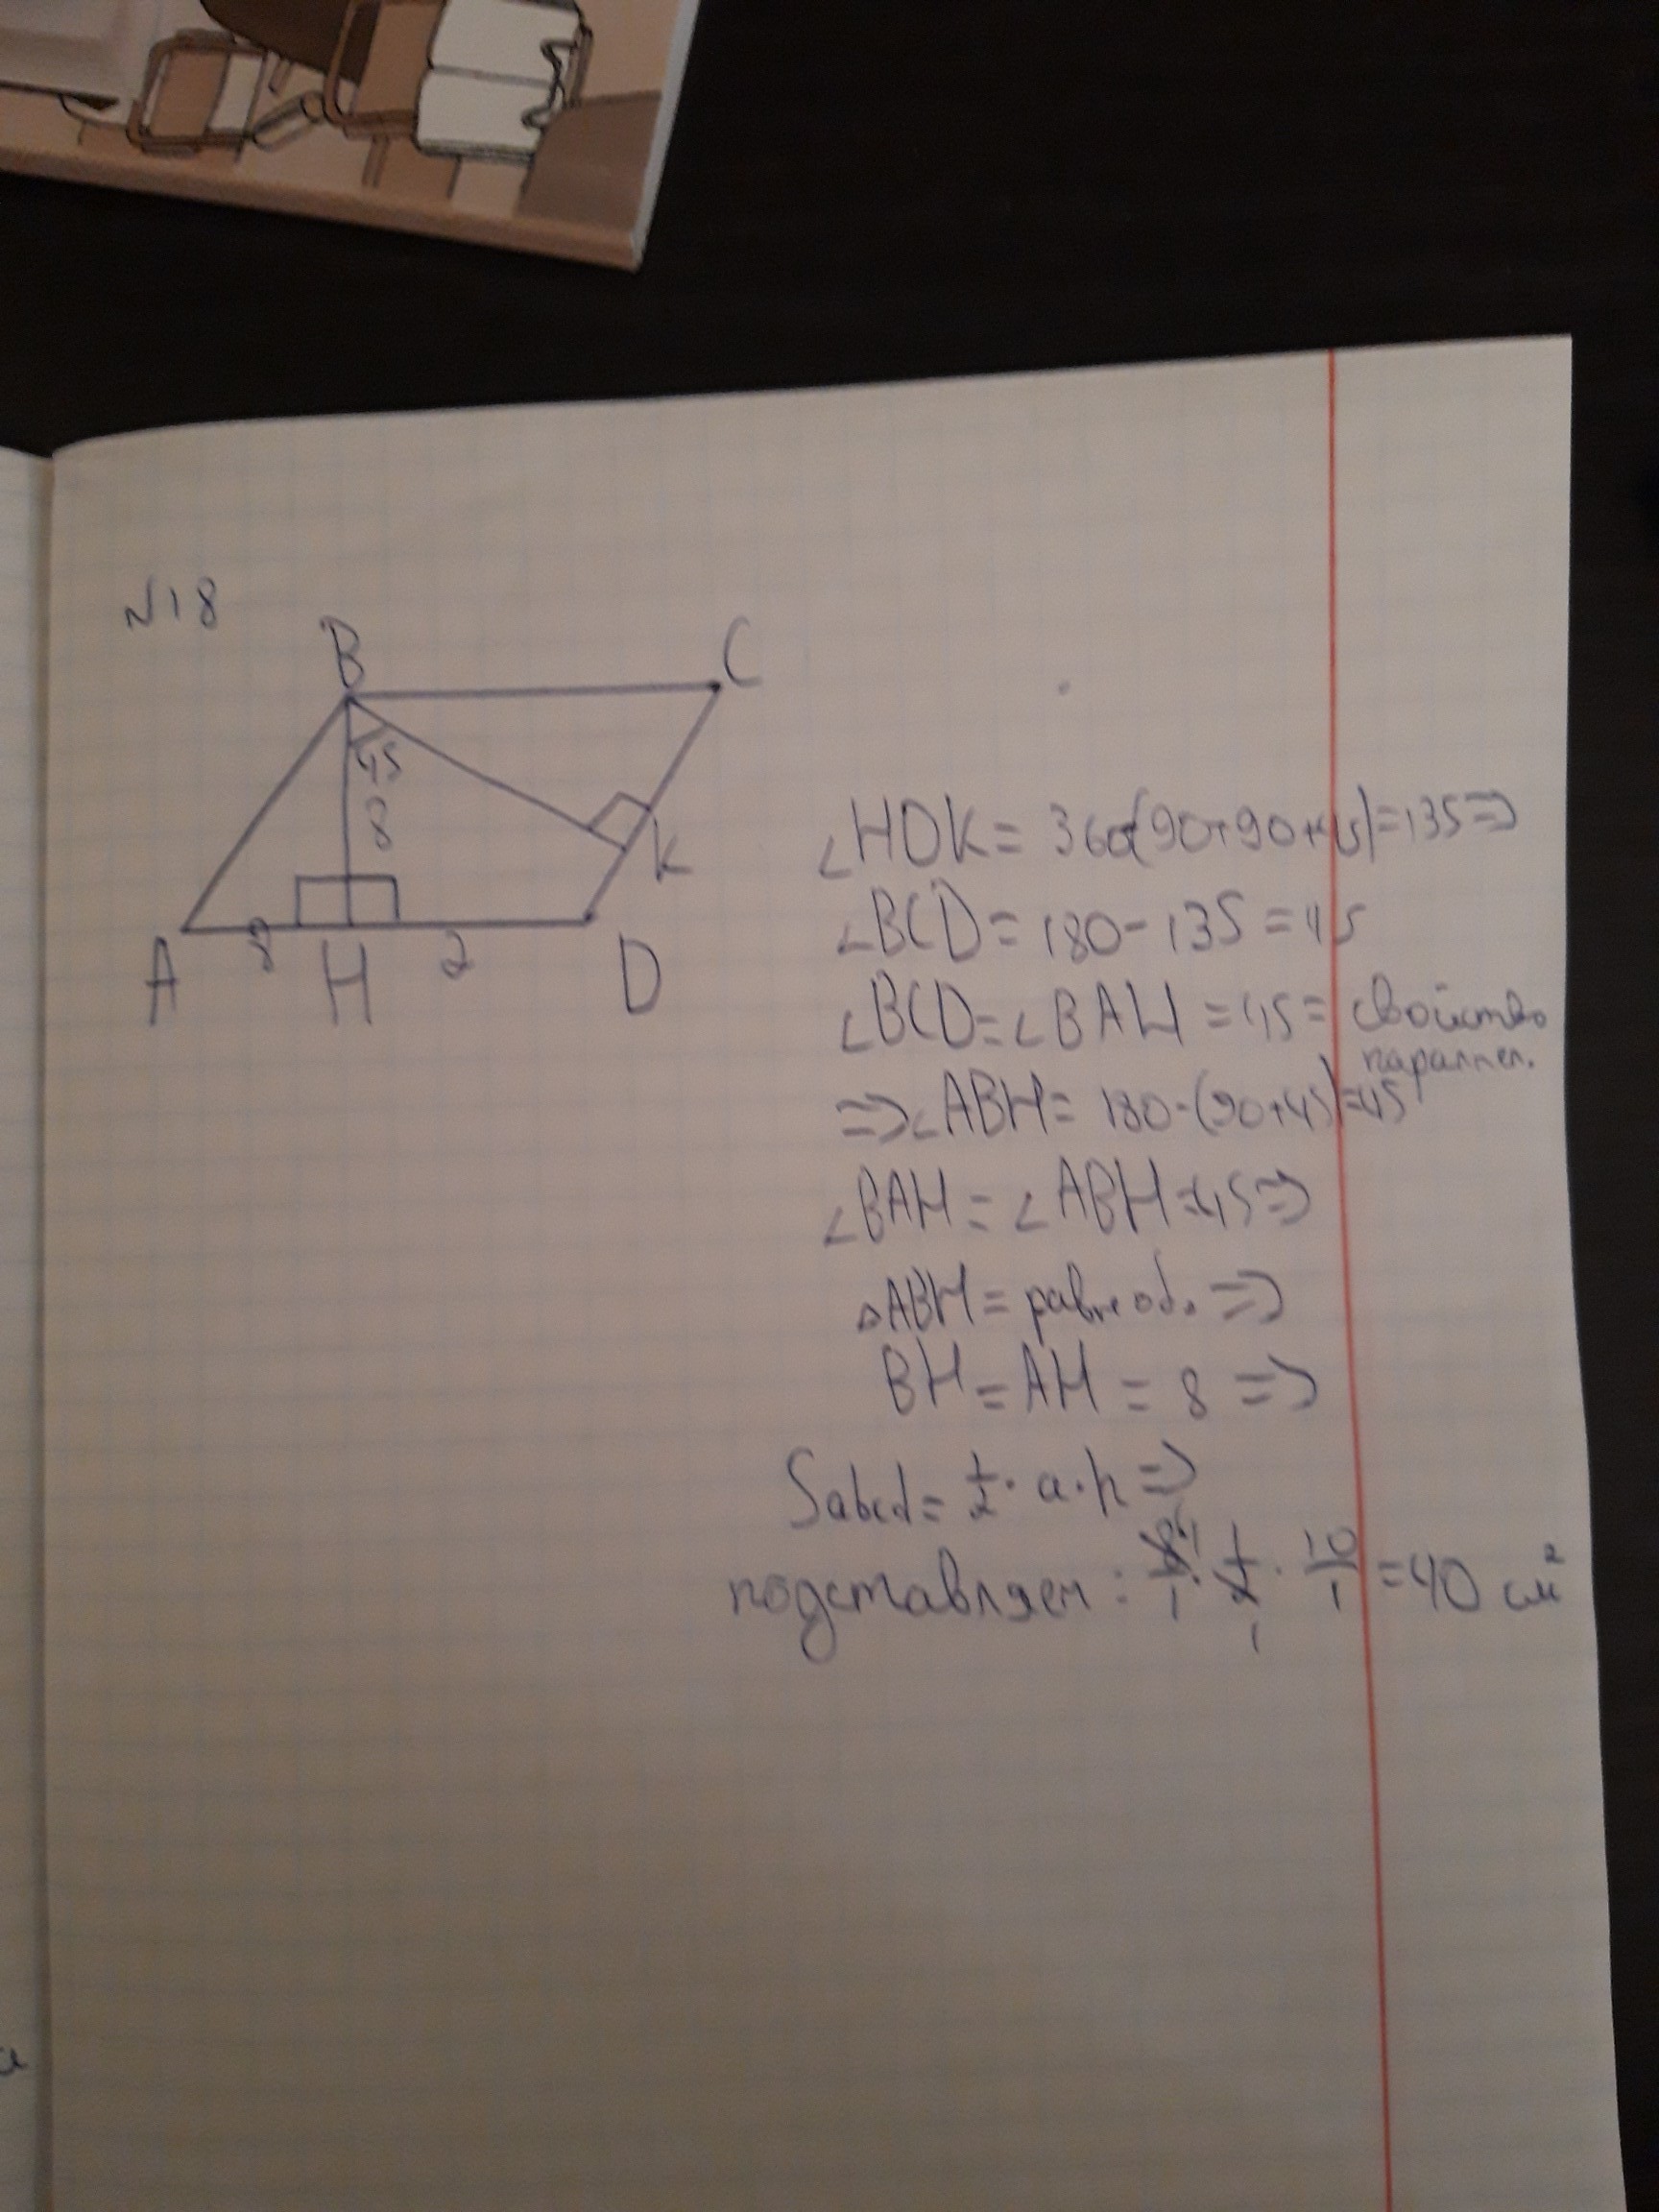 N18
B
C
45
8
K
A
8
H
2
D
∠HDK = 360-(90+90+45)=135 =>
∠BCD = 180 - 135 = 45
∠BCD = ∠BAH = 45 = свойство
параллел.
=> ∠ABH = 180-(90+45)=45
∠BAH = ∠ABH = 45 =>
△ABH = равноб. =>
BH = AH = 8 =>
Sabcd = 1/2 · a · h =>
подставляем: 8/1 · 1/2 · 10/1 = 40 см²
4
1